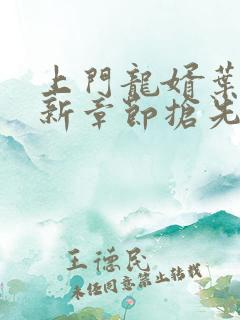 上門龍婿葉
新章節搶先
王德民
未经同意禁止转载